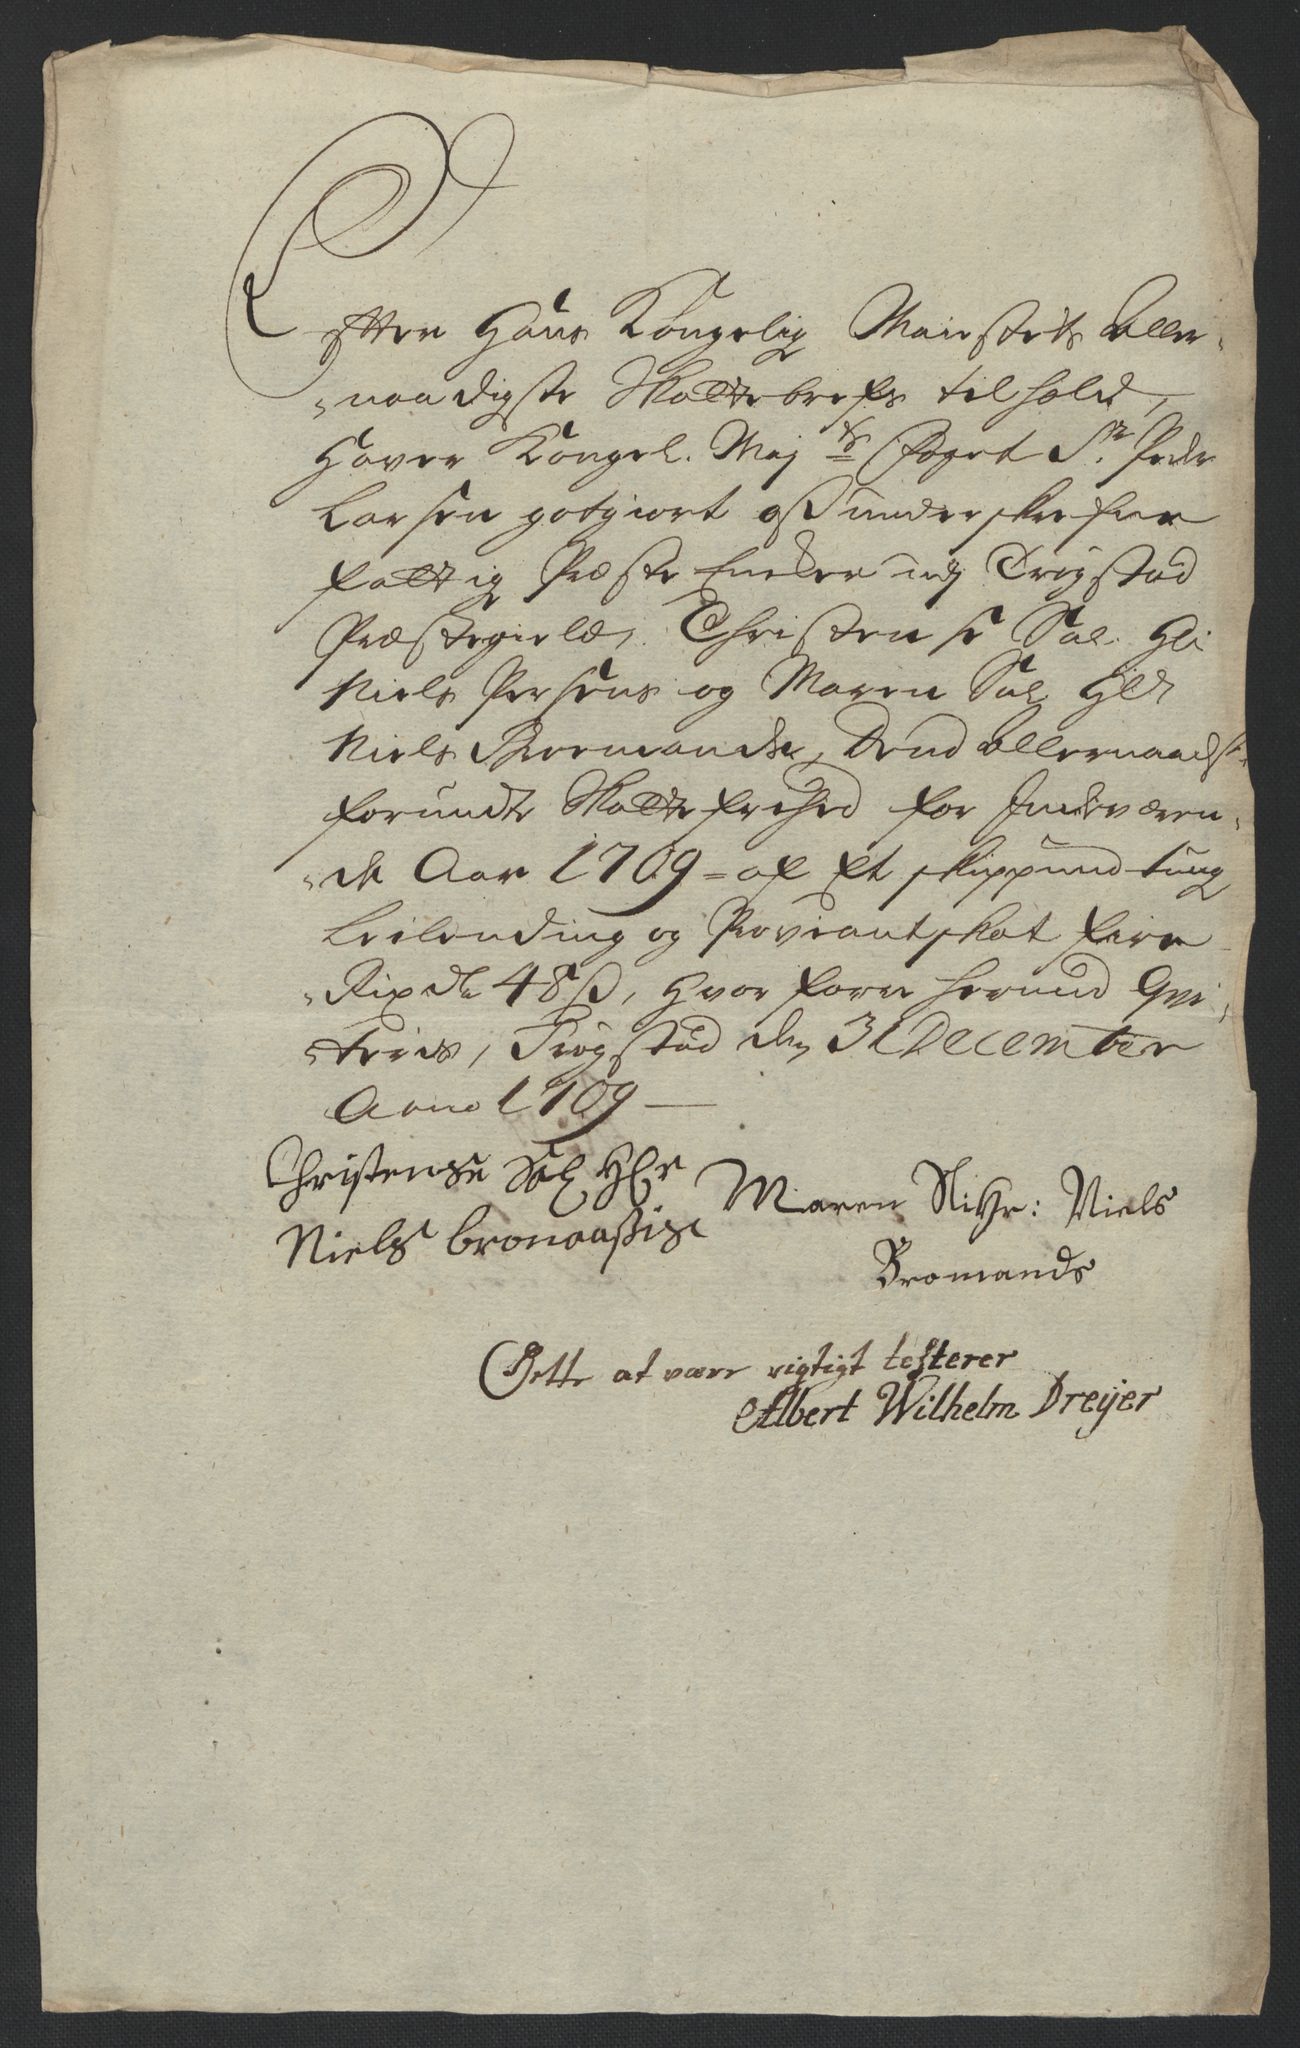 Efter Hans Kongelig Maiestets Aller-
naadigste Skattebrefs tilhold,
Haver Kongel. Maj ts foget Sr. Peder
Larsen gotgiort oß underskrefne
fattig Præste Encker udj Trøgstad
Præstegield, Christense Sal. Hr
Niels Persens og Maren Sal. Hr
Niels Bromands, Dend Allernaadst
forundte Skatte frihed for Indeværen-
de Aar 1709 = af Et skippund tung
Leilending og Proviantskat fire
Rixdlr 48 ß, hvor fore herved Qvi-
teris, Trøgstad den 31 December
Anno 1709 —
Christense Sal Hr Maren Hr: Niels
Niels Bromands
Dette at være rigtigt testerer
Albert Wilhelm Dreyer